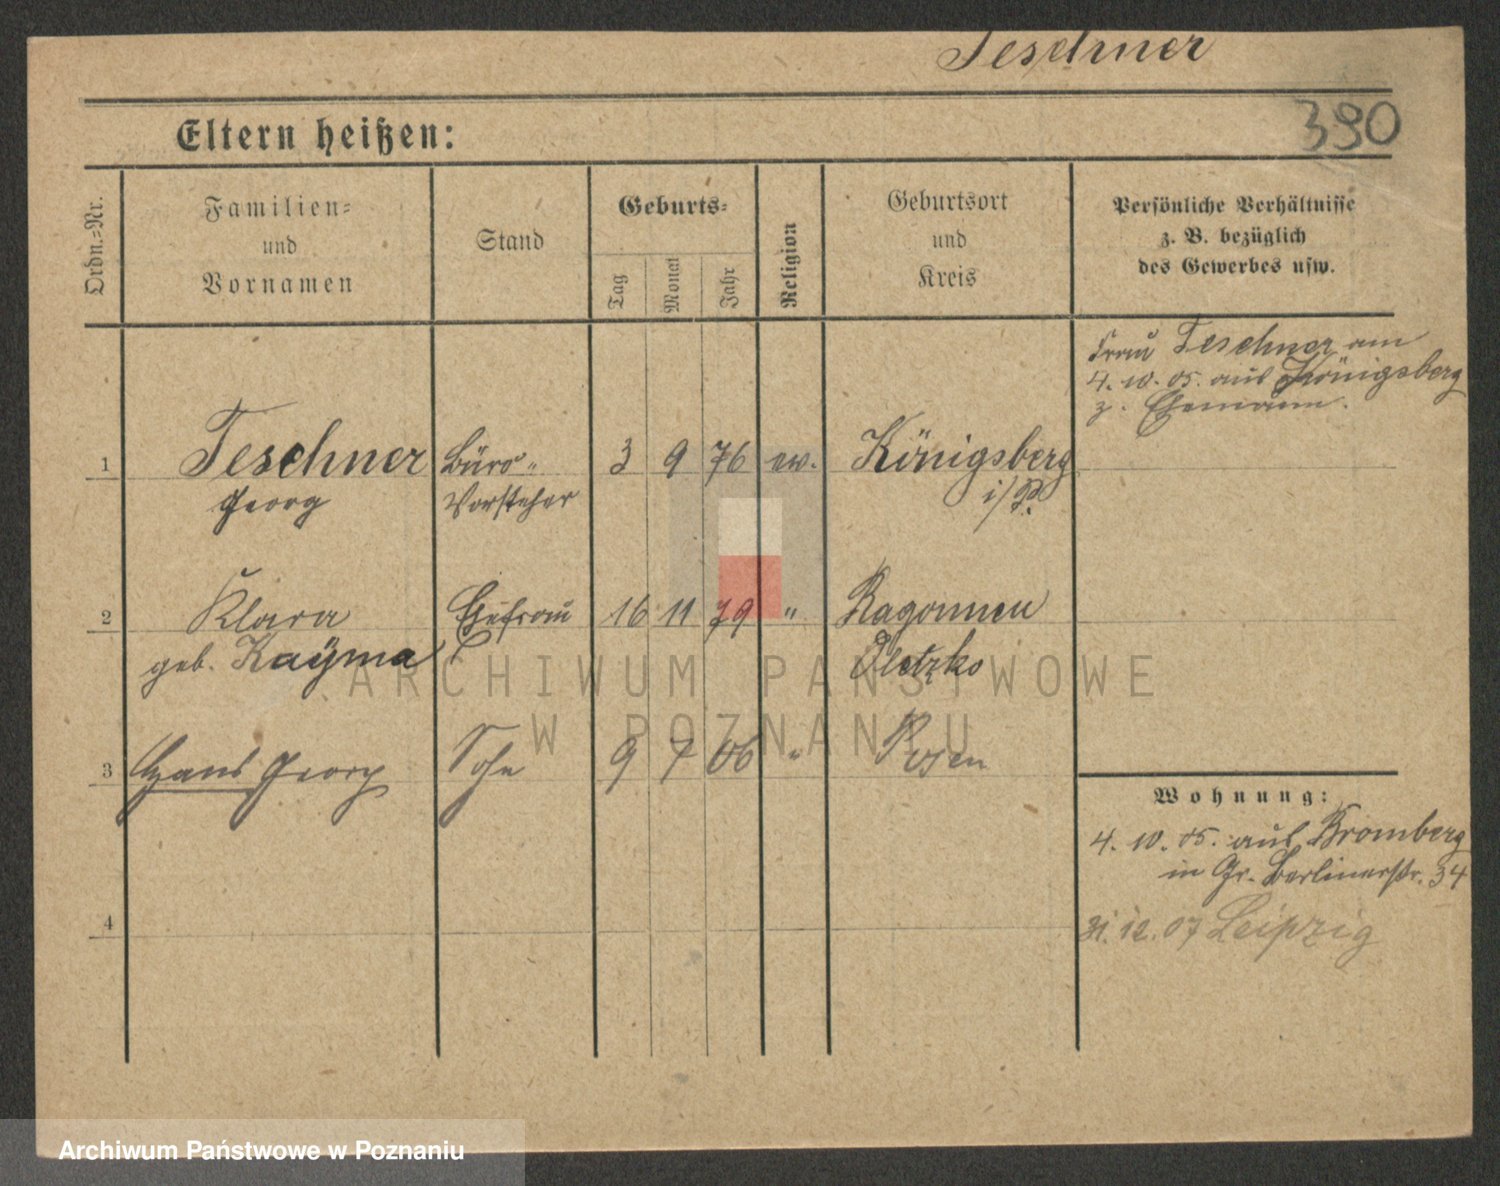 Teschner
390
Eltern heißen:
Ordn.=Nr.
Familien=
und
Vornamen
Stand
Geburts=
Tag
Monat
Jahr
Religion
Geburtsort
und
Kreis
Persönliche Verhältnisse
z. B. bezüglich
des Gewerbes usw.
Frau Teschner am
4. 10. 05. aus Königsberg
z. Ehemann.
1 Teschner Büro- 3 9 76 ev. Königsberg
Georg Vorsteher i/P.
2 Klara Ehefrau 16 11 79 "
geb. Kayma Oletzko
3 Hans Georg Sohn 9 7 06 " Posen
4
Wohnung:
4. 10. 05. aus Bromberg
in Gr. Berlinerstr. 34
31. 12. 07 Leipzig
ARCHIWUM PAŃSTWOWE
W POZNANIU
Archiwum Państwowe w Poznaniu